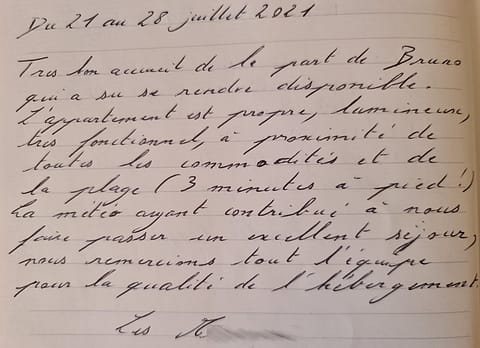 Du 21 au 28 juillet 2021
Tres bon accueil de la part de Bruno
qui a su se rendre disponible.
L'appartement est propre, lumineux,
tres fonctionnel, à proximité de
toutes les commodités et de
la plage (3 minutes à pied !)
La météo ayant contribué à nous
faire passer un excellent séjour,
nous remercions tout l'équipe
pour la qualité de l'hébergement.
Les